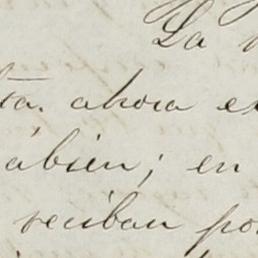 La
ta. ahora e
ábien; en
reciban po